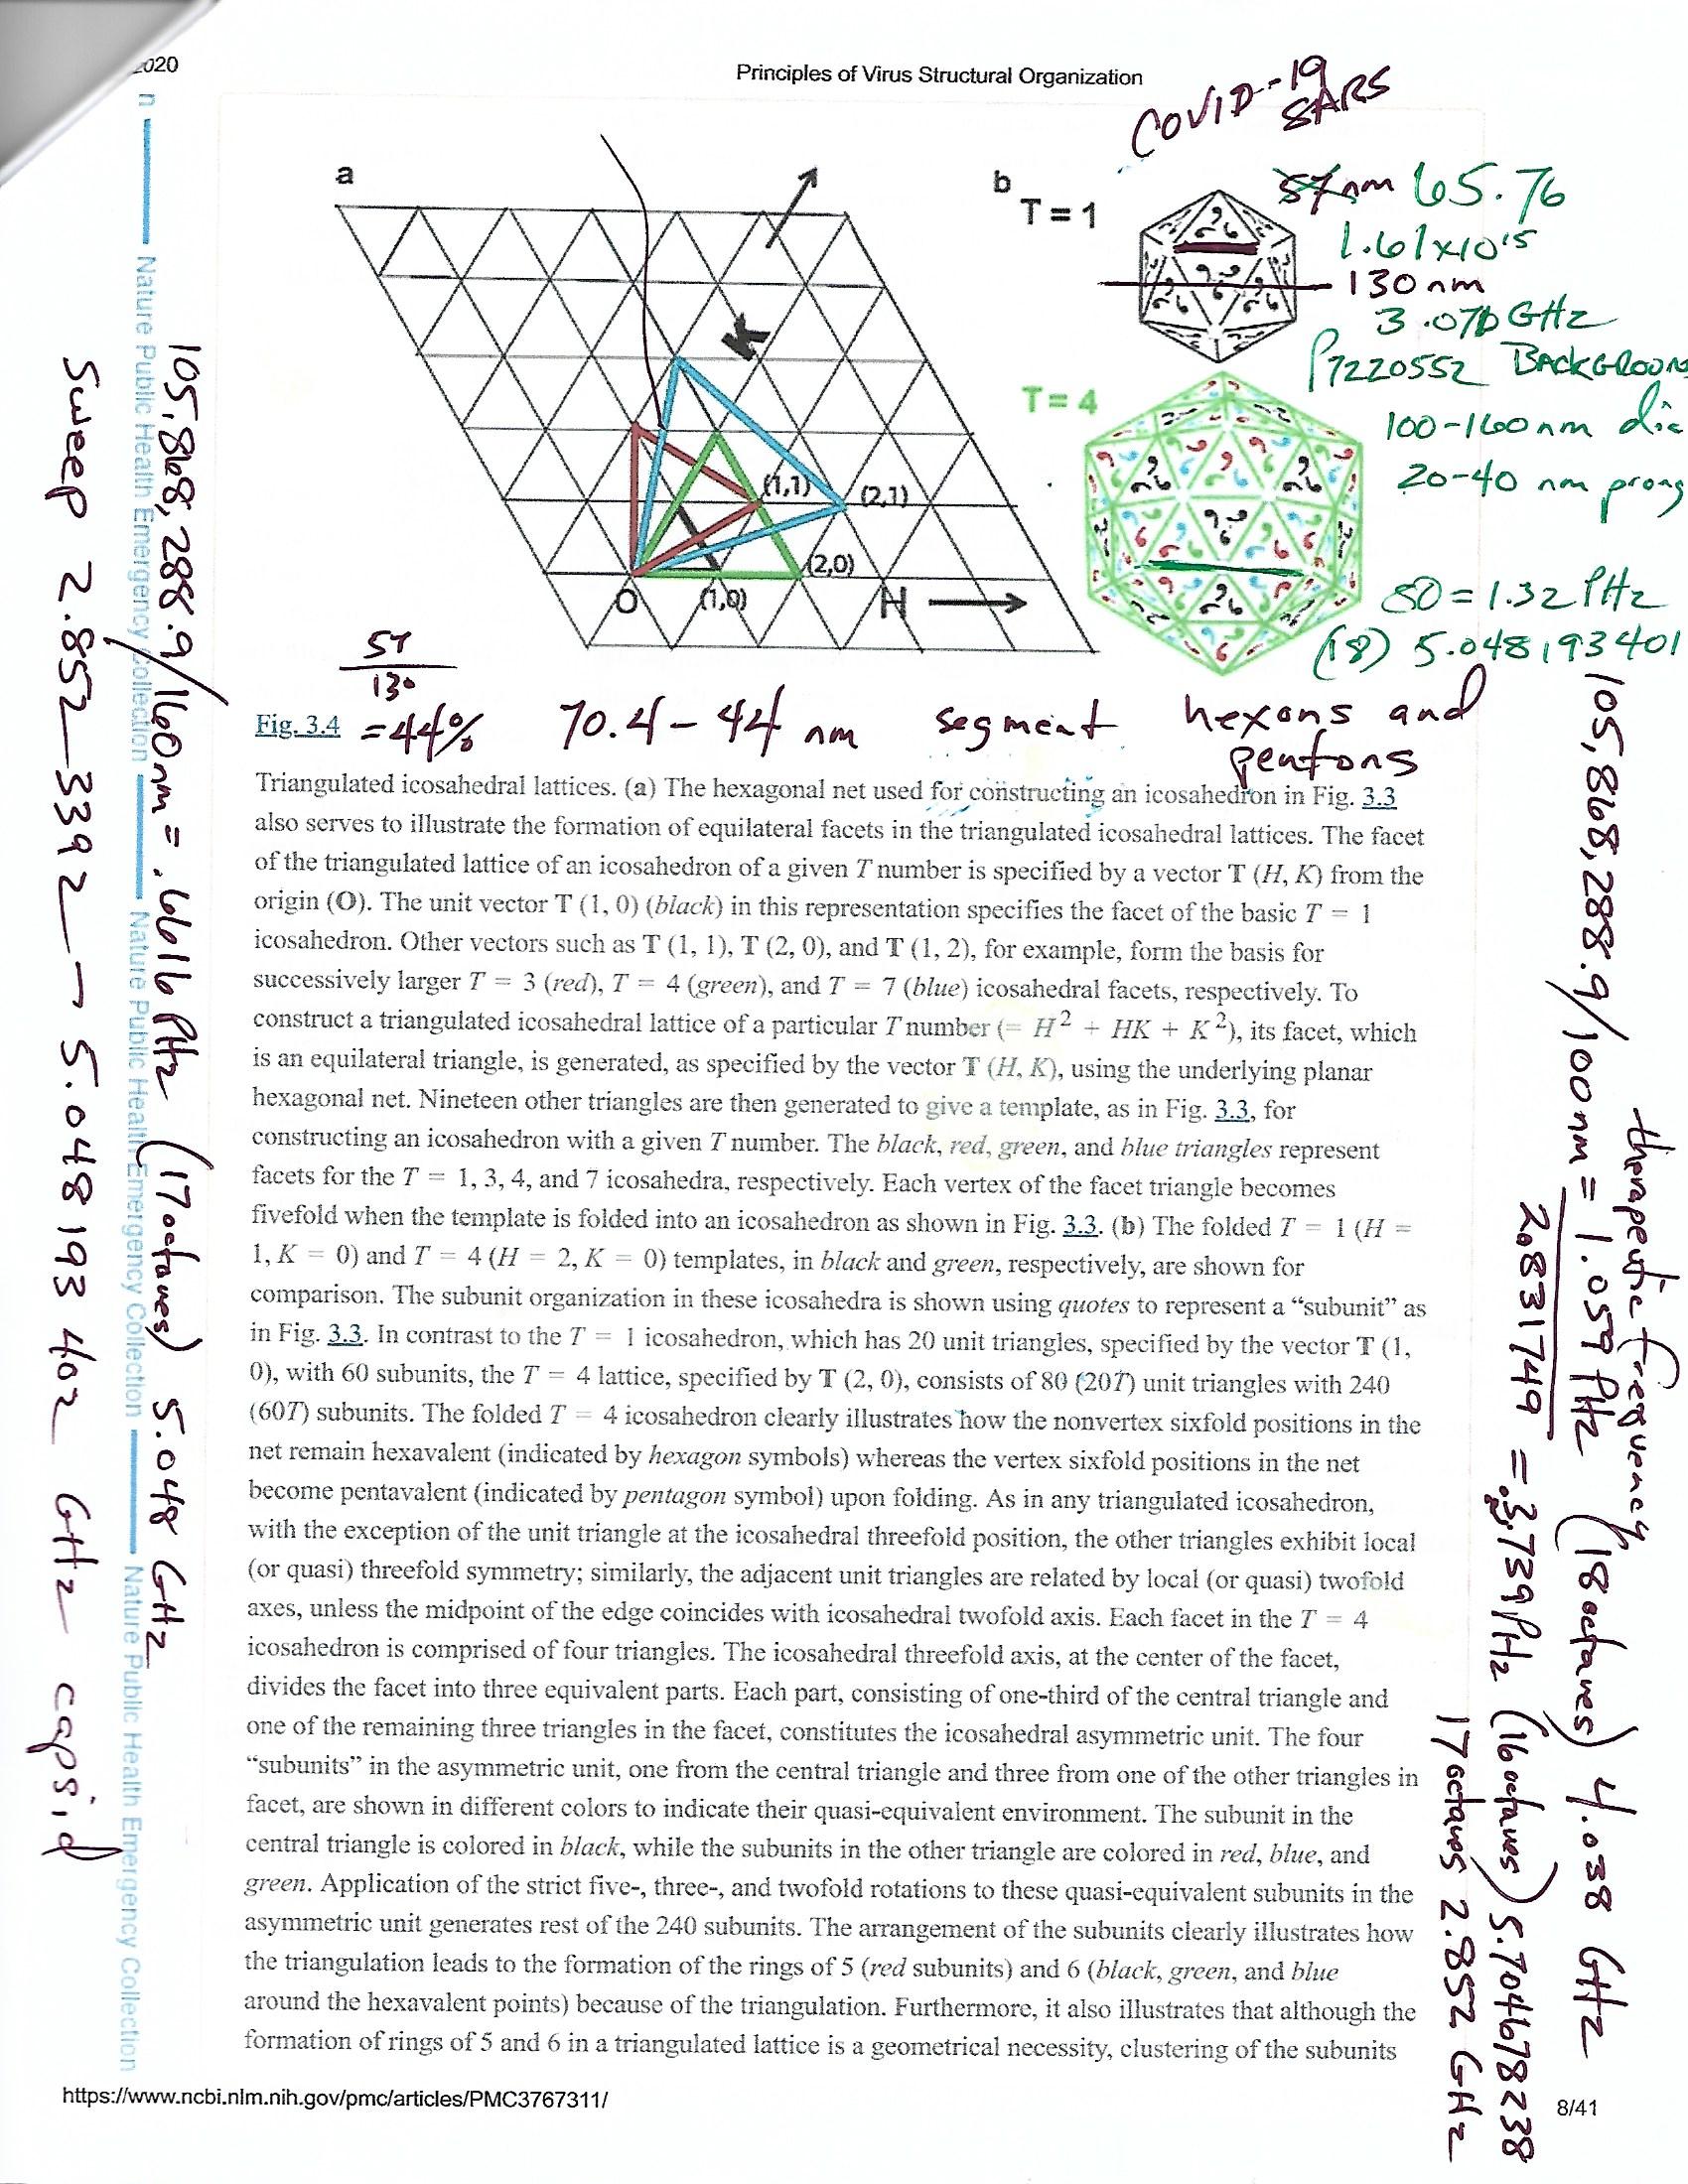 2020
Principles of Virus Structural Organization
COVID-19
SARS
a
b
T = 1
57nm 65.76
1.61x10^15
130nm
3.070 GHz
P7220552 BACKGROUND
T= 4
100-160nm dia
20-40 nm prong
80=1.32 PHz
(18) 5.048193401
K
(1,1)
(2,1)
(2,0)
O
(1,0)
H
57
130
= 44%
70.4 - 44 nm segment hexons and
pentons
Fig. 3.4
Triangulated icosahedral lattices. (a) The hexagonal net used for constructing an icosahedron in Fig. 3.3
also serves to illustrate the formation of equilateral facets in the triangulated icosahedral lattices. The facet
of the triangulated lattice of an icosahedron of a given T number is specified by a vector T (H, K) from the
origin (O). The unit vector T (1, 0) (black) in this representation specifies the facet of the basic T = 1
icosahedron. Other vectors such as T (1, 1), T (2, 0), and T (1, 2), for example, form the basis for
successively larger T = 3 (red), T = 4 (green), and T = 7 (blue) icosahedral facets, respectively. To
construct a triangulated icosahedral lattice of a particular T number (= H² + HK + K²), its facet, which
is an equilateral triangle, is generated, as specified by the vector T (H, K), using the underlying planar
hexagonal net. Nineteen other triangles are then generated to give a template, as in Fig. 3.3, for
constructing an icosahedron with a given T number. The black, red, green, and blue triangles represent
facets for the T = 1, 3, 4, and 7 icosahedra, respectively. Each vertex of the facet triangle becomes
fivefold when the template is folded into an icosahedron as shown in Fig. 3.3. (b) The folded T = 1 (H =
1, K = 0) and T = 4 (H = 2, K = 0) templates, in black and green, respectively, are shown for
comparison. The subunit organization in these icosahedra is shown using quotes to represent a “subunit” as
in Fig. 3.3. In contrast to the T = 1 icosahedron, which has 20 unit triangles, specified by the vector T (1,
0), with 60 subunits, the T = 4 lattice, specified by T (2, 0), consists of 80 (20T) unit triangles with 240
(60T) subunits. The folded T = 4 icosahedron clearly illustrates how the nonvertex sixfold positions in the
net remain hexavalent (indicated by hexagon symbols) whereas the vertex sixfold positions in the net
become pentavalent (indicated by pentagon symbol) upon folding. As in any triangulated icosahedron,
with the exception of the unit triangle at the icosahedral threefold position, the other triangles exhibit local
(or quasi) threefold symmetry; similarly, the adjacent unit triangles are related by local (or quasi) twofold
axes, unless the midpoint of the edge coincides with icosahedral twofold axis. Each facet in the T = 4
icosahedron is comprised of four triangles. The icosahedral threefold axis, at the center of the facet,
divides the facet into three equivalent parts. Each part, consisting of one-third of the central triangle and
one of the remaining three triangles in the facet, constitutes the icosahedral asymmetric unit. The four
“subunits” in the asymmetric unit, one from the central triangle and three from one of the other triangles in
facet, are shown in different colors to indicate their quasi-equivalent environment. The subunit in the
central triangle is colored in black, while the subunits in the other triangle are colored in red, blue, and
green. Application of the strict five-, three-, and twofold rotations to these quasi-equivalent subunits in the
asymmetric unit generates rest of the 240 subunits. The arrangement of the subunits clearly illustrates how
the triangulation leads to the formation of the rings of 5 (red subunits) and 6 (black, green, and blue
around the hexavalent points) because of the triangulation. Furthermore, it also illustrates that although the
formation of rings of 5 and 6 in a triangulated lattice is a geometrical necessity, clustering of the subunits
https://www.ncbi.nlm.nih.gov/pmc/articles/PMC3767311/
8/41
n
Nature Public Health Emergency Collection
Nature Public Health Emergency Collection
Nature Public Health Emergency Collection
105,868,288.9/160nm = .6616 PHz (17octaves) 5.048 GHz
Sweep 2.852 3392 — 5.048193402 GHz capsid
therapeutic frequency
105,868,288.9/100nm = 1.059 PHz (18octaves) 4.038 GHz
2.831749 = .3739 PHz (16octaves) 5.704678238
17octaves 2.852 GHz